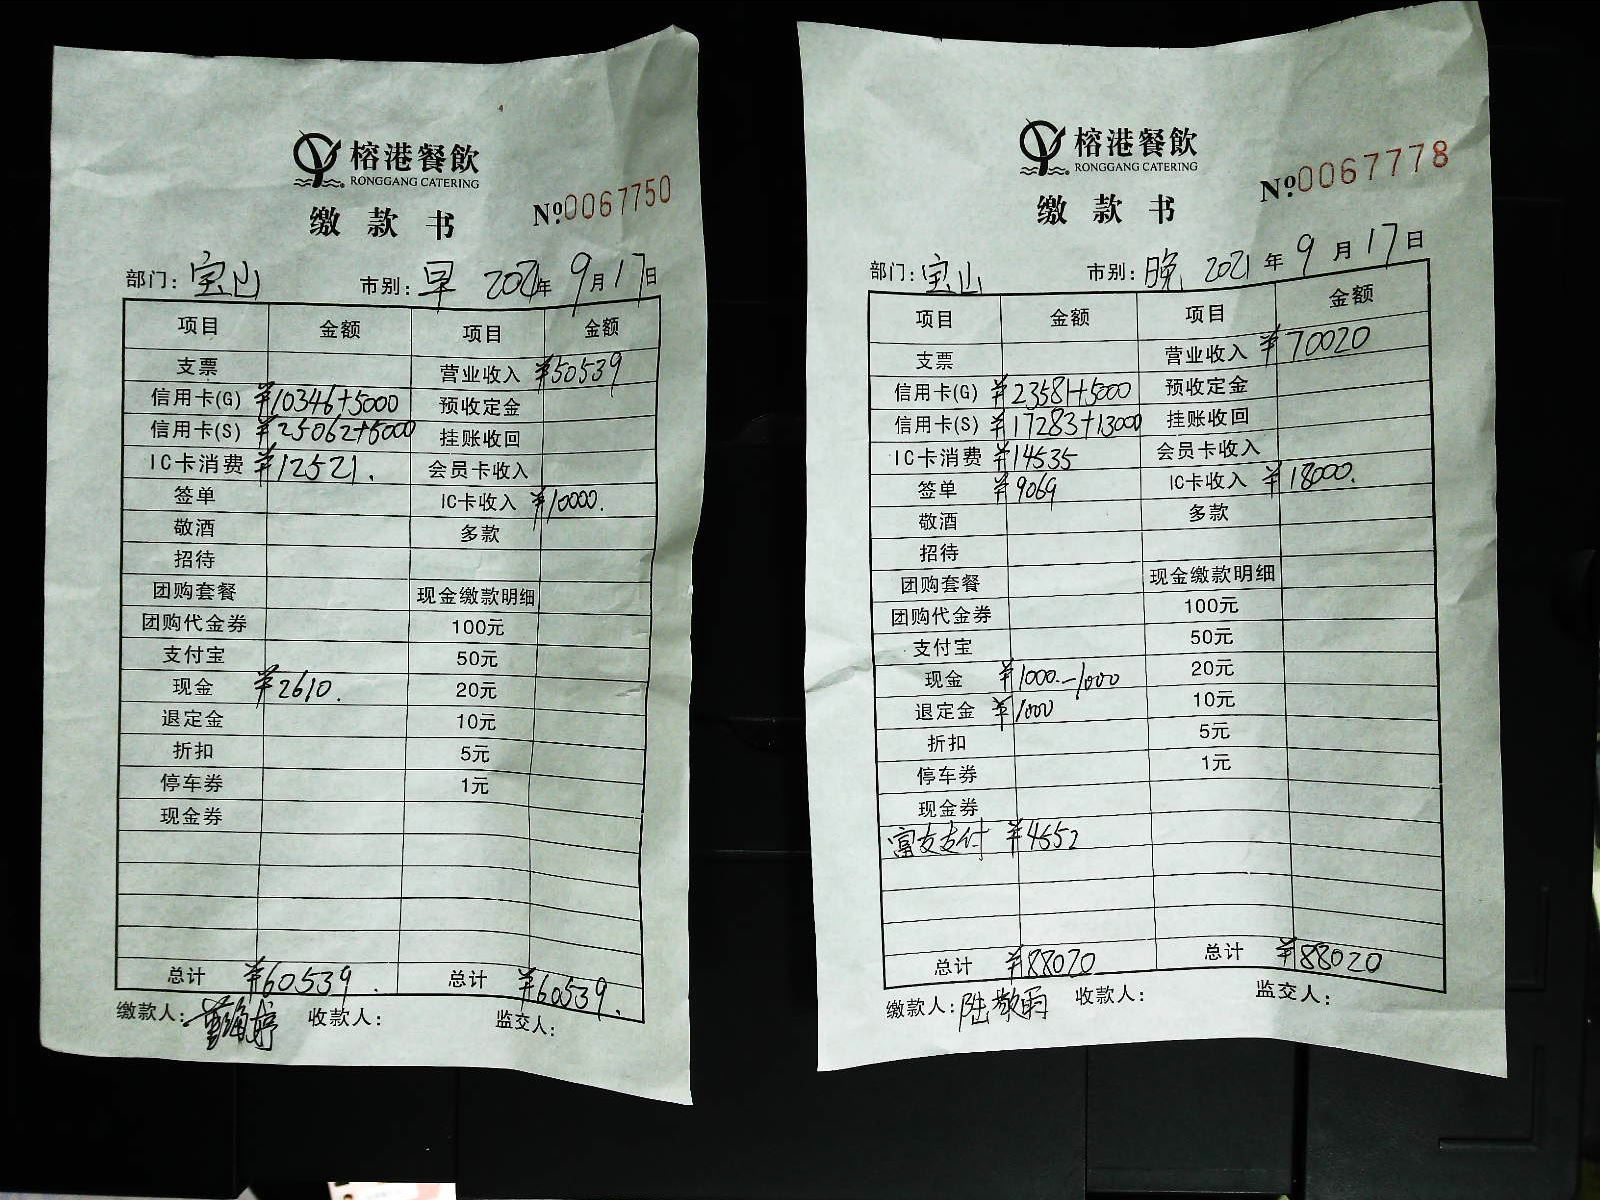 榕港餐飲
RONGGANG CATERING
缴款书
No.0067750
部门：宝山 市别：早 2021年9月17日
项目 金额 项目 金额
支票 营业收入 ¥50539
信用卡(G) ¥10346+5000 预收定金
信用卡(S) ¥25062+5000 挂账收回
IC卡消费 ¥12521. 会员卡收入
签单 IC卡收入 ¥10000.
敬酒 多款
招待
团购套餐 现金缴款明细
团购代金券 100元
支付宝 50元
现金 ¥2610. 20元
退定金 10元
折扣 5元
停车券 1元
现金券
总计 ¥60539. 总计 ¥60539.
缴款人： 收款人： 监交人：
榕港餐飲
RONGGANG CATERING
缴款书
No.0067778
部门：宝山 市别：晚 2021年9月17日
项目 金额 项目 金额
支票 营业收入 ¥70020
信用卡(G) ¥23581+5000 预收定金
信用卡(S) ¥17283+13000 挂账收回
IC卡消费 ¥14535 会员卡收入
签单 ¥9069 IC卡收入 ¥18000.
敬酒 多款
招待
团购套餐 现金缴款明细
团购代金券 100元
支付宝 50元
现金 ¥1000.-1000 20元
退定金 ¥1000 10元
折扣 5元
停车券 1元
现金券
富友支付 ¥4552
总计 ¥88020 总计 ¥88020
缴款人：陆敬雨 收款人： 监交人：